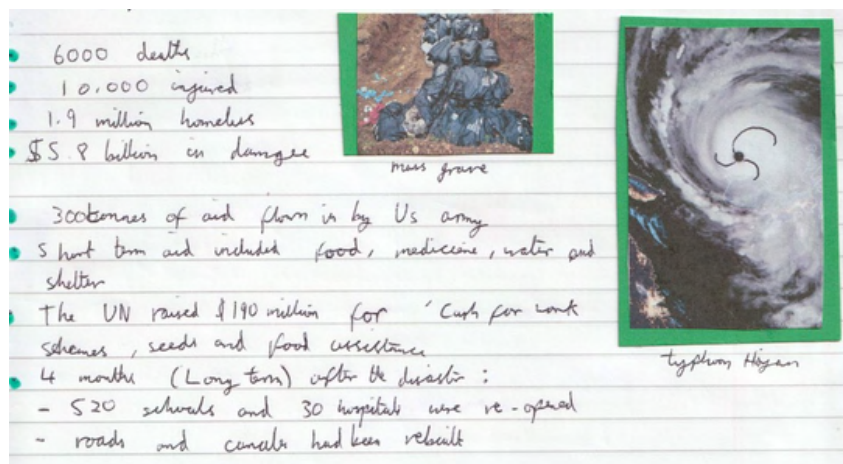 6000 deaths
10,000 injured
1.9 million homeless
$5.8 billion in damage
mass grave
300tonnes of aid flown in by US army
Short term aid included food, medicine, water and
shelter
The UN raised $190 million for 'Cash for work
schemes, seeds and food assistance
4 months (Long term) after the disaster:
- 520 schools and 30 hospitals were re-opened
- roads and canals had been rebuilt
typhoon Hayan